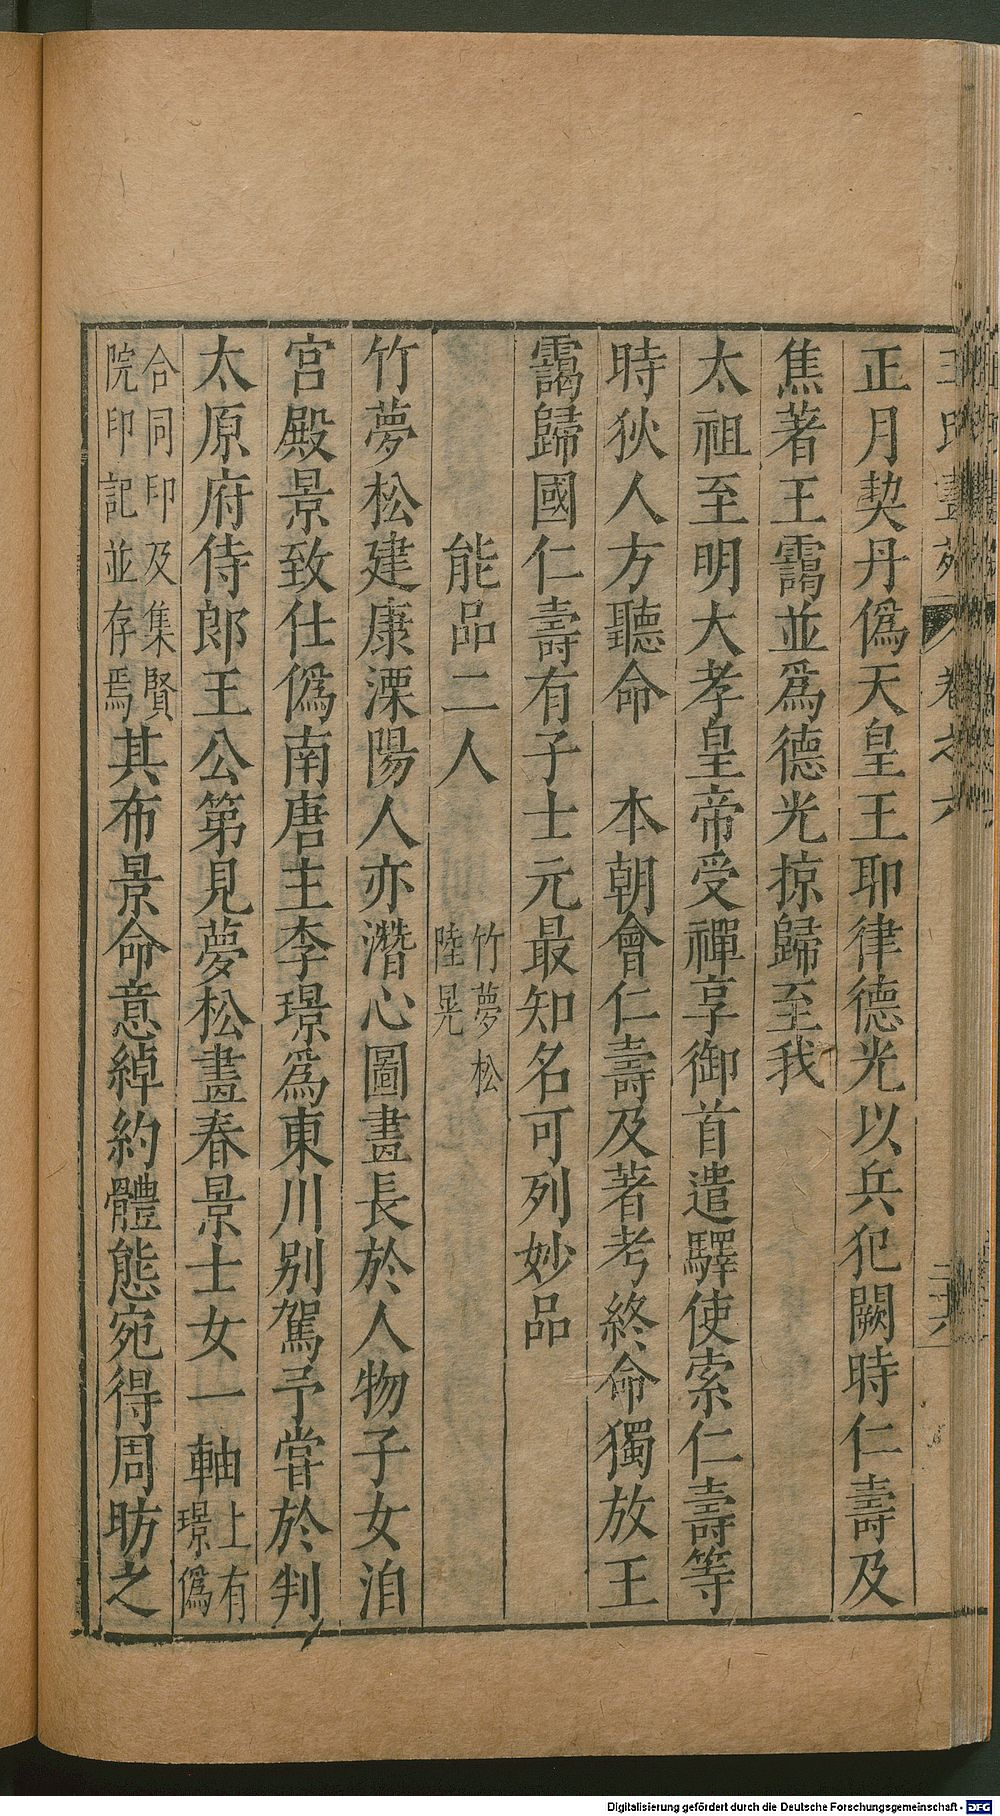 王氏畫苑 卷之六 二十六
正月契丹僞天皇王耶律德光以兵犯闕時仁壽及
焦著王靄並爲德光掠歸至我
太祖至明大孝皇帝受禪享御首遣驛使索仁壽等
時狄人方聽命　本朝會仁壽及著考終命獨放王
靄歸國仁壽有子士元最知名可列妙品
能品二人　竹夢松　陸晃
竹夢松建康溧陽人亦潛心圖畫長於人物子女洎
宮殿景致仕僞南唐主李璟爲東川别駕予嘗於判
太原府侍郎王公第見夢松畫春景士女一軸上有璟僞
合同印及集賢院印記並存焉其布景命意綽約體態宛得周昉之
Digitalisierung gefördert durch die Deutsche Forschungsgemeinschaft - DFG